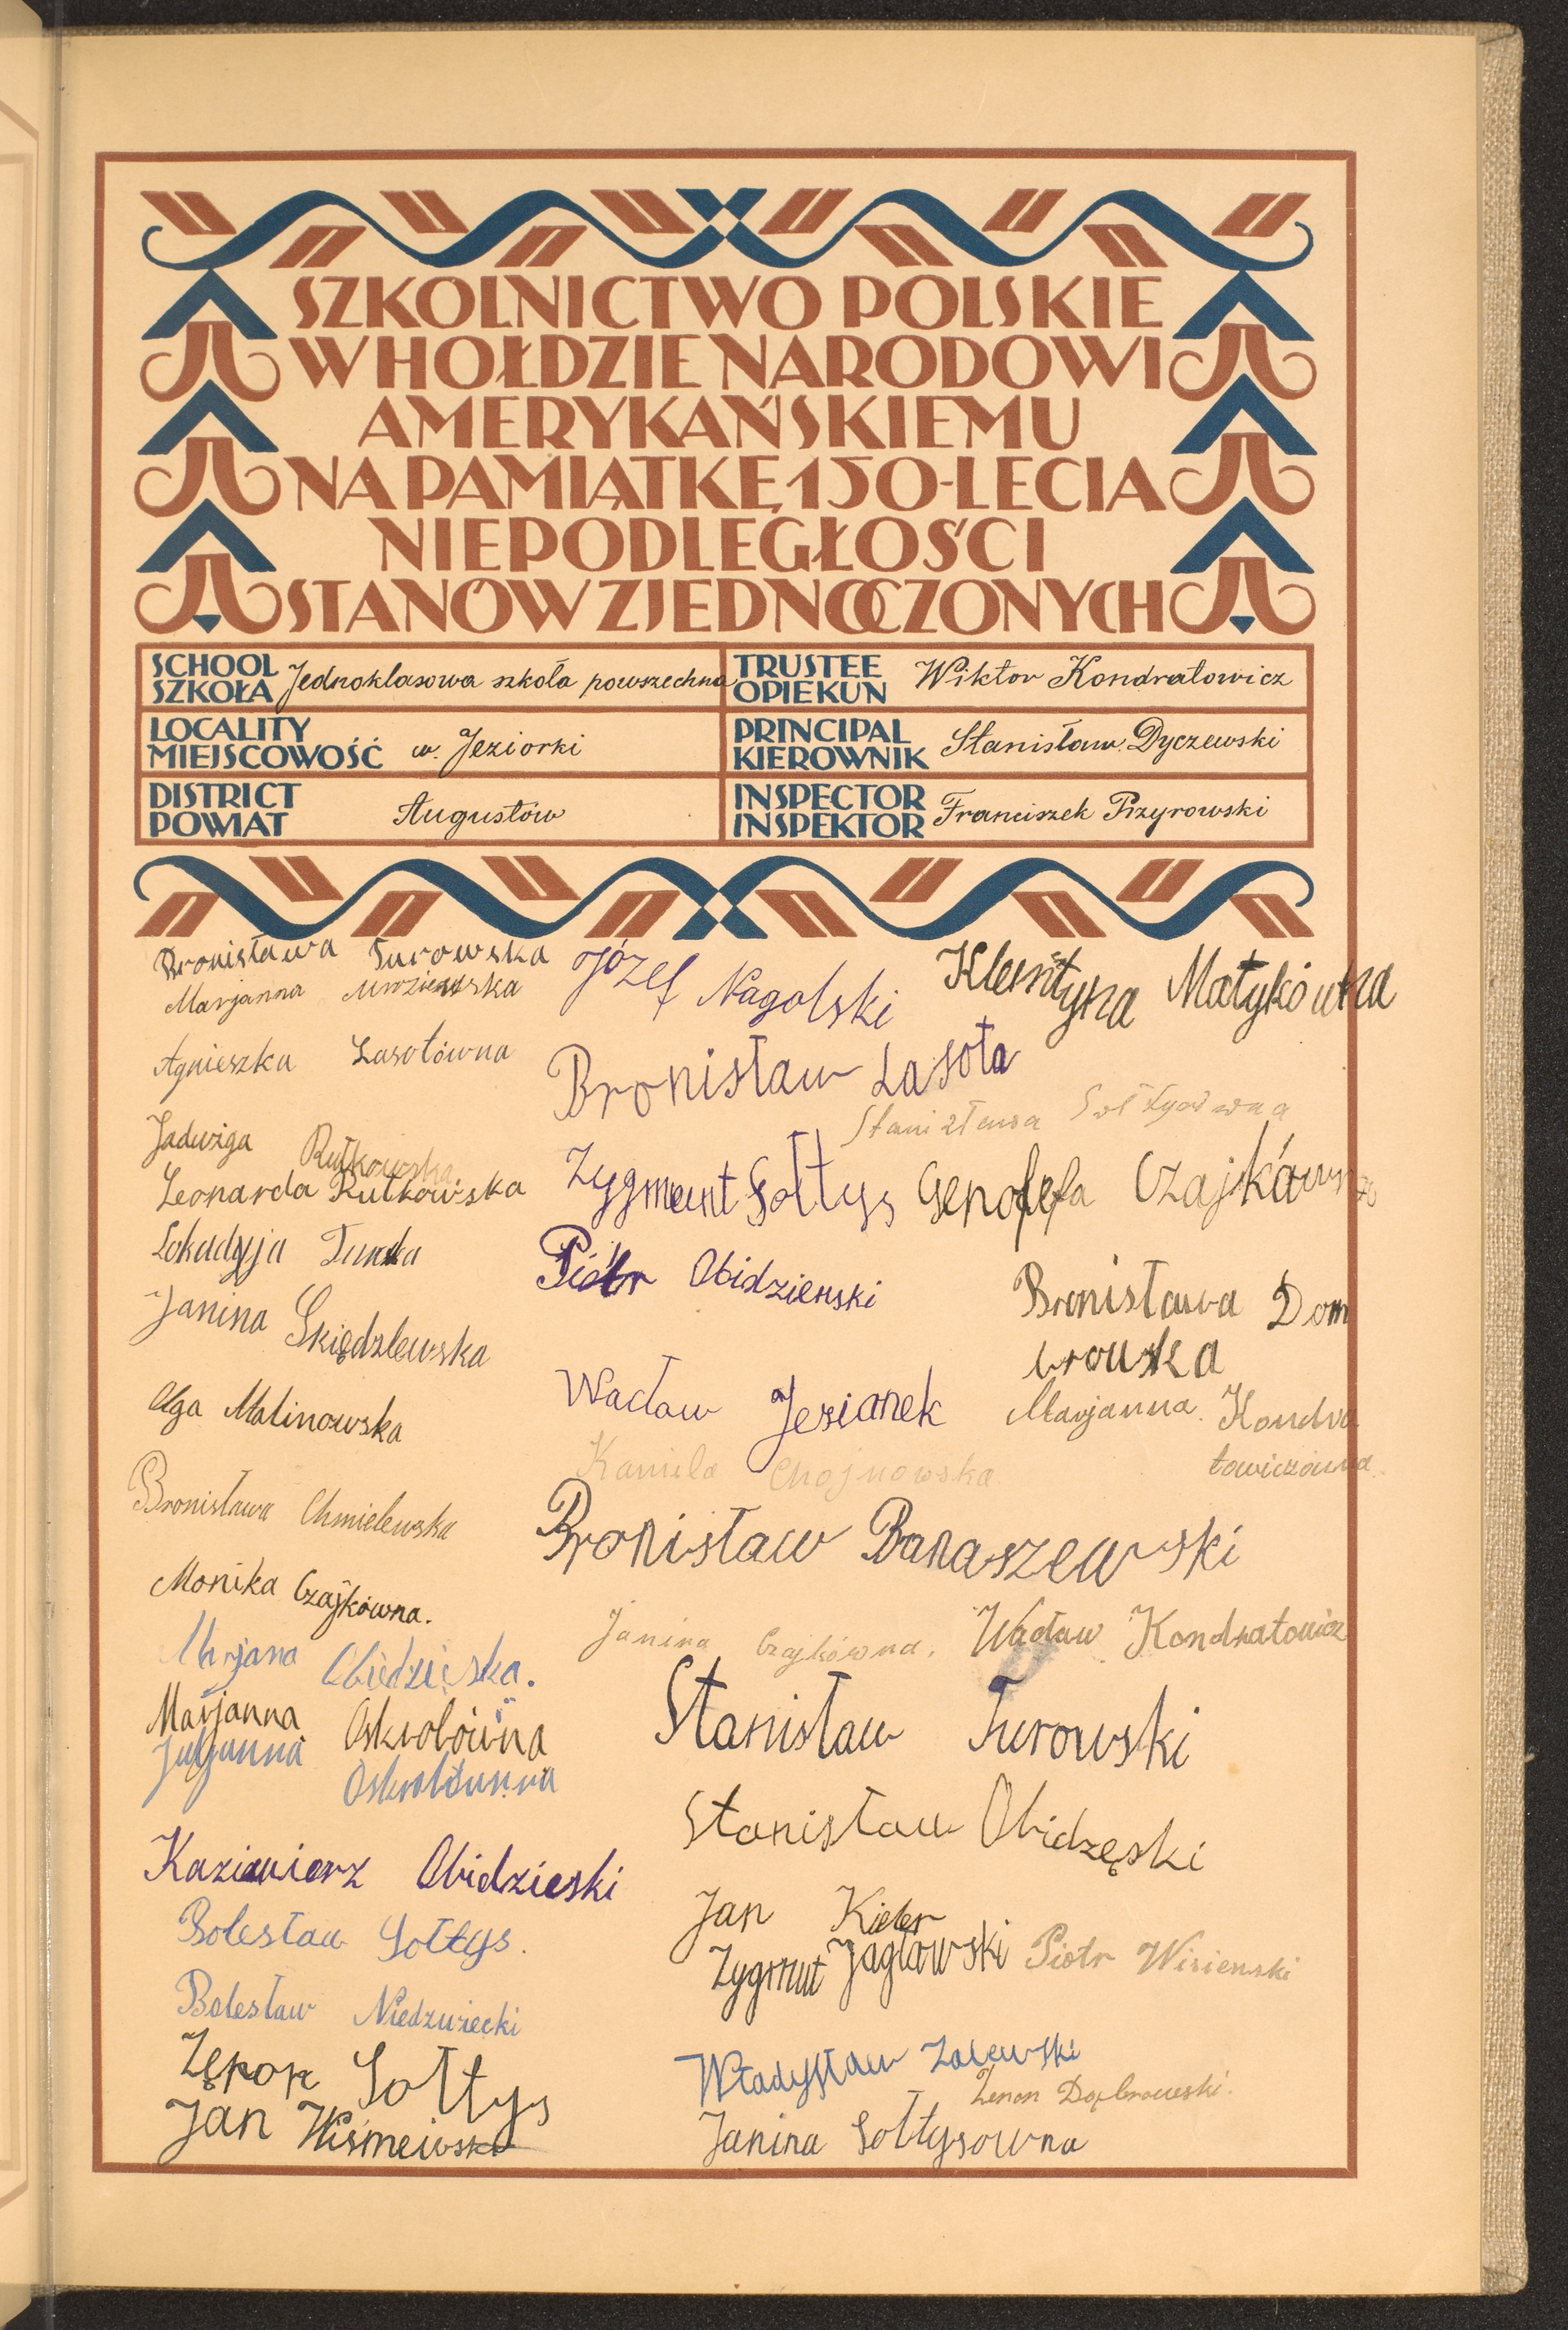 SZKOLNICTWO POLSKIE
W HOŁDZIE NARODOWI
AMERYKAŃSKIEMU
NA PAMIĄTKĘ 150-LECIA
NIEPODLEGŁOŚCI
STANÓW ZJEDNOCZONYCH
SCHOOL
SZKOŁA Jednoklasowa szkoła powszechna
TRUSTEE
OPIEKUN Wiktor Kondratowicz
LOCALITY
MIEJSCOWOŚĆ w Jeziorki
PRINCIPAL
KIEROWNIK Stanisław Dyczewski
DISTRICT
POWIAT Augustów
INSPECTOR
INSPEKTOR Franciszek Przyrowski
Bronisława Turowska
Marjanna
Agnieszka Lasotówna
Jadwiga Rutkowska
Leonarda Rutkowska
Lokadyja
Janina Skiędzlewska
Olga Malinowska
Bronisława Chmielewska
Monika Czajkówna.
Obiedzińska.
Marjanna Oskrobówna
Juljanna
Kazimierz Obidzieski
Bolesław Sołtys.
Bolesław Niedzwiecki
Zęnon Sołtys
Jan Wiśmewski
Józef Nagolski
Klemtyna Matykówna
Bronisław Lasota
Stanisława Sołtysówna
Zygmunt Sołtys
Genofefa Czajkówna
Piotr Obidzienski
Bronisława Dom
browska
Wacław Jezianek
Marjanna Kondra
towiczówna
Kamila Chojnowska
Bronisław Banaszewski
Janina Czajkówna.
Wacław Kondratowicz
Stanisław Turowski
Stanisław Obidzęski
Jan Kieler
Zygmut Jagłowski
Piotr Wisienski
Władysław Zalewski
Zenon Dąbrowski.
Janina Sołtysowna